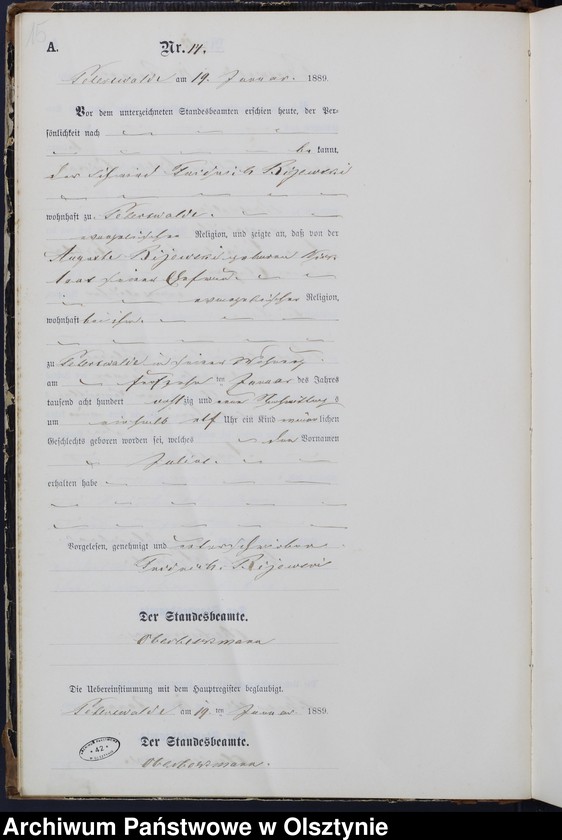 15
A.
Nr. 14.
am 19. Januar 1889.
Vor dem unterzeichneten Standesbeamten erschien heute, der Per-
sönlichkeit nach
be kannt,
der Friedrich Rijewski
wohnhaft zu
evangelischer Religion, und zeigte an, daß von der
Auguste Rijewski geborenen
seiner Ehefrau
evangelischer Religion,
wohnhaft bei ihm
zu in seiner Wohnung
am fünfzehn ten Januar des Jahres
tausend acht hundert acht zig und neun Nachmittags
um einhalb elf Uhr ein Kind männ lichen
Geschlechts geboren worden sei, welches den Vornamen
Julius.
erhalten habe
Vorgelesen, genehmigt und unterschrieben
Friedrich Rijewski
Der Standesbeamte.
Die Uebereinstimmung mit dem Hauptregister beglaubigt.
am 19. ten Januar 1889.
Der Standesbeamte.
* 42 *
Archiwum Państwowe w Olsztynie